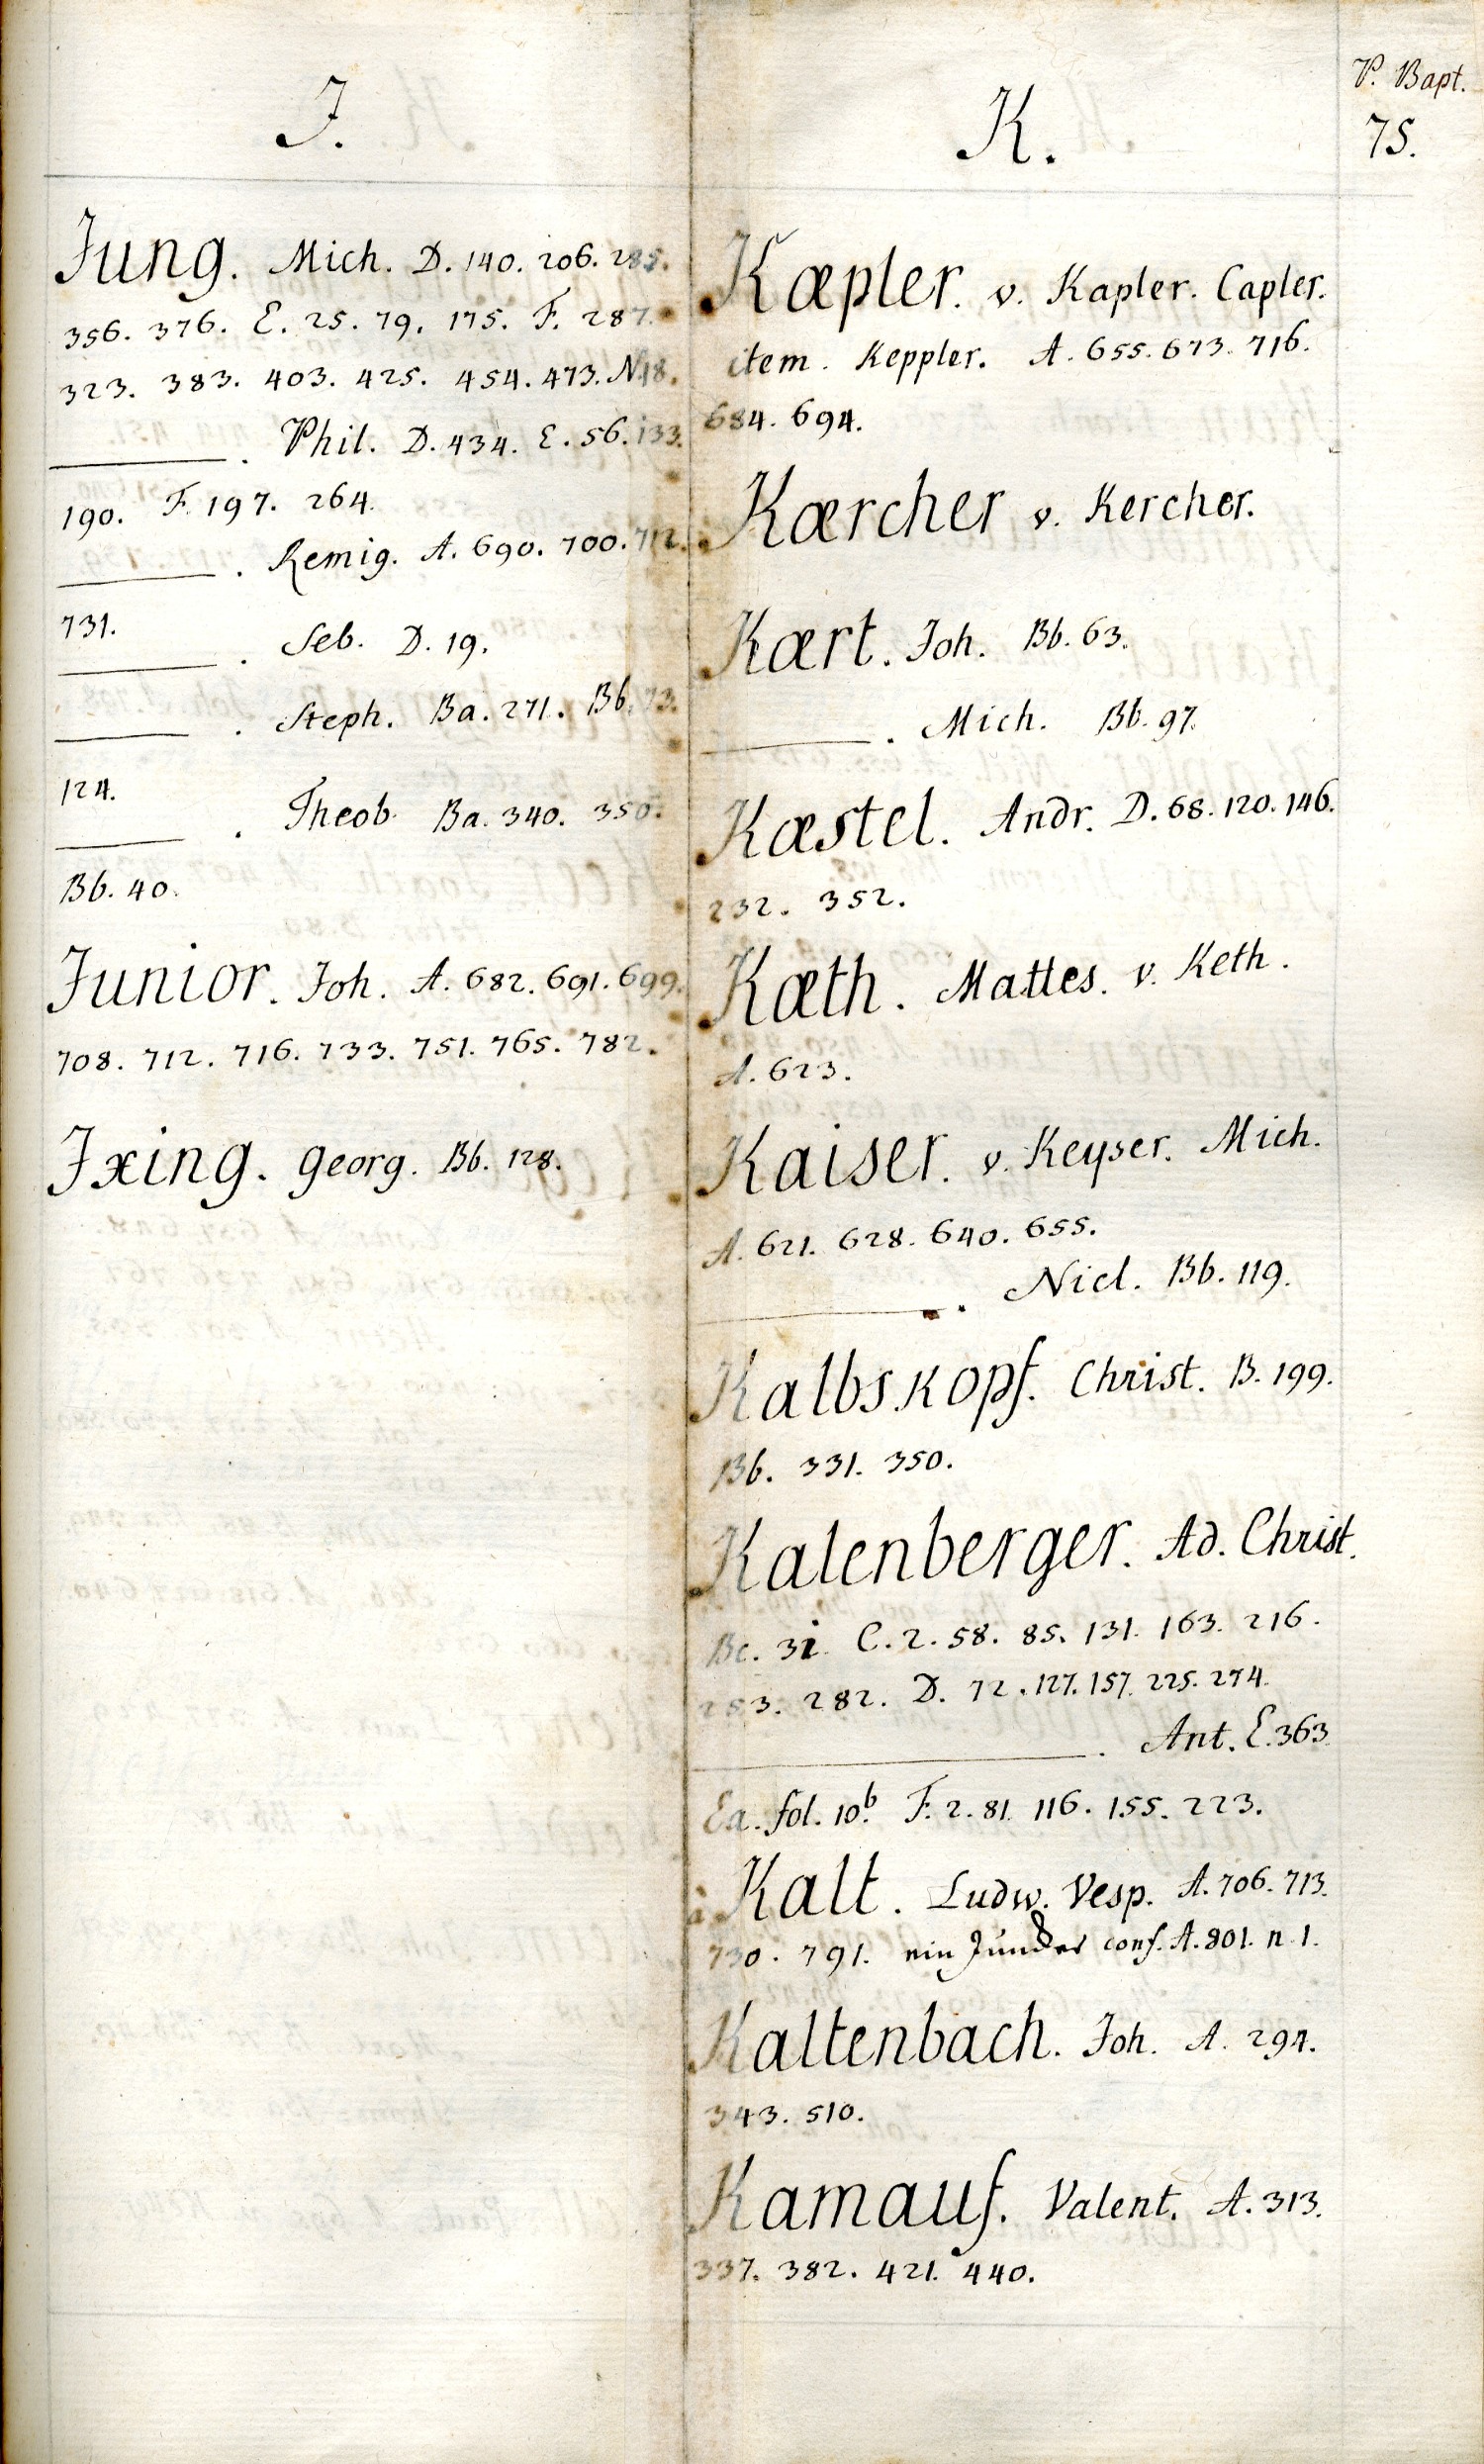 P. Bapt.
75.
J.
Jung. Mich. D. 140. 206. 285.
356. 376. E. 25. 79. 175. F. 287.
323. 383. 403. 425. 454. 473. N.18.
———. Phil. D. 434. E. 56. 133.
190. F. 197. 264.
———. Remig. A. 690. 700. 712.
731.
———. Seb. D. 19.
———. Steph. Ba. 271. Bb. 73.
124.
———. Theob. Ba. 340. 350.
Bb. 40.
Junior. Joh. A. 682. 691. 699.
708. 712. 716. 733. 751. 765. 782.
Jxing. Georg. Bb. 128.
K.
Kæpler. v. Kapler. Capler.
item. Keppler. A. 655. 673. 716.
684. 694.
Kærcher v. Kercher.
Kært. Joh. Bb. 63.
———. Mich. Bb. 97.
Kæstel. Andr. D. 68. 120. 146.
232. 352.
Kæth. Mattes. v. Keth.
A. 623.
Kaiser. v. Keyser. Mich.
A. 621. 628. 640. 655.
———. Nicl. Bb. 119.
Kalbskopf. Christ. B. 199.
Bb. 331. 350.
Kalenberger. Ad. Christ.
Bc. C. 2. 58. 85. 131. 163. 216.
253. 282. D. 72. 127. 157. 225. 274.
———. Ant. E. 363.
Ea. fol. 10b F. 2. 81. 116. 155. 223.
à Kalt. Ludw. Vesp. A. 706. 713.
730. 791. ein conf. A. 801. n. 1.
Kaltenbach. Joh. A. 294.
343. 510.
Kamauf. Valent. A. 313.
337. 382. 421. 440.